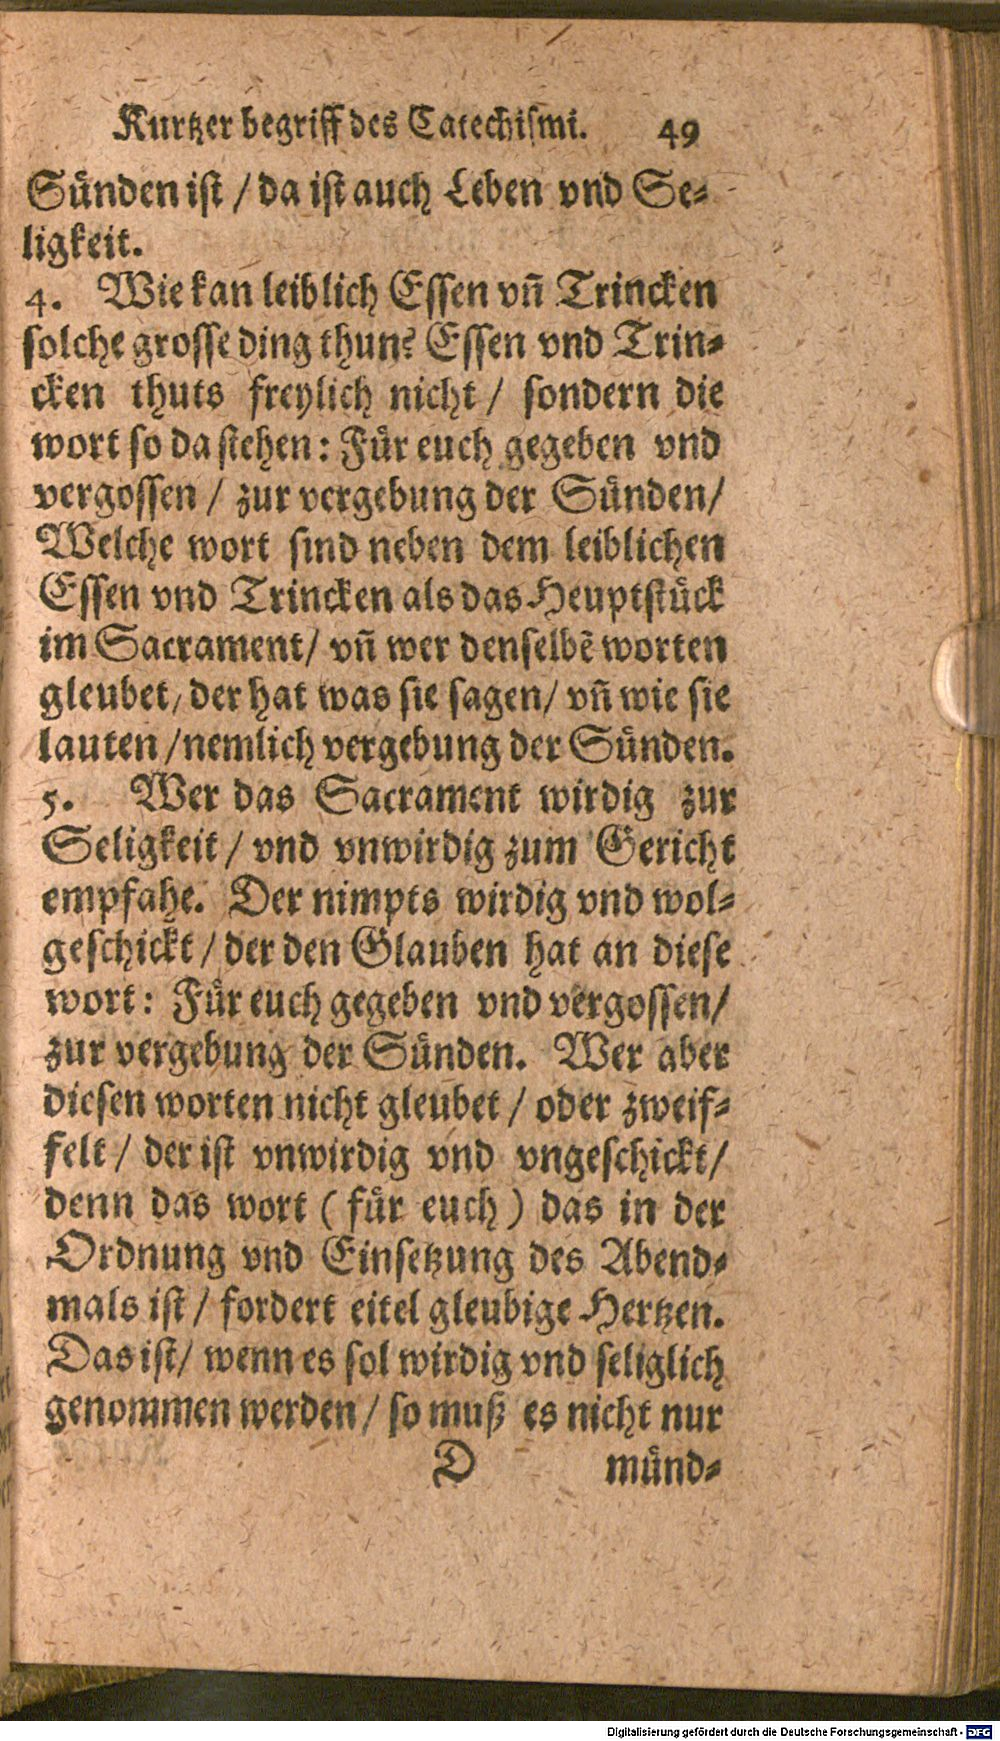 Kurtzer begriff des Catechismi. 49
Sünden ist / da ist auch Leben vnd Se-
ligkeit.
4. Wie kan leiblich Essen vñ Trincken
solche grosse ding thun? Essen vnd Trin-
cken thuts freylich nicht / sondern die
wort so da stehen: Für euch gegeben vnd
vergossen / zur vergebung der Sünden/
Welche wort sind neben dem leiblichen
Essen vnd Trincken als das Heuptstück
im Sacrament/ vñ wer denselbẽ worten
gleubet, der hat was sie sagen/ vñ wie sie
lauten /nemlich vergebung der Sünden.
5. Wer das Sacrament wirdig zur
Seligkeit / vnd vnwirdig zum Gericht
empfahe. Der nimpts wirdig vnd wol-
geschickt / der den Glauben hat an diese
wort: Für euch gegeben vnd vergossen/
zur vergebung der Sünden. Wer aber
diesen worten nicht gleubet / oder zweif-
felt / der ist vnwirdig vnd vngeschickt/
denn das wort ( für euch ) das in der
Ordnung vnd Einsetzung des Abend-
mals ist / fordert eitel gleubige Hertzen.
Das ist/ wenn es sol wirdig vnd seliglich
genommen werden / so muß es nicht nur
D münd-
Digitalisierung gefördert durch die Deutsche Forschungsgemeinschaft - DFG